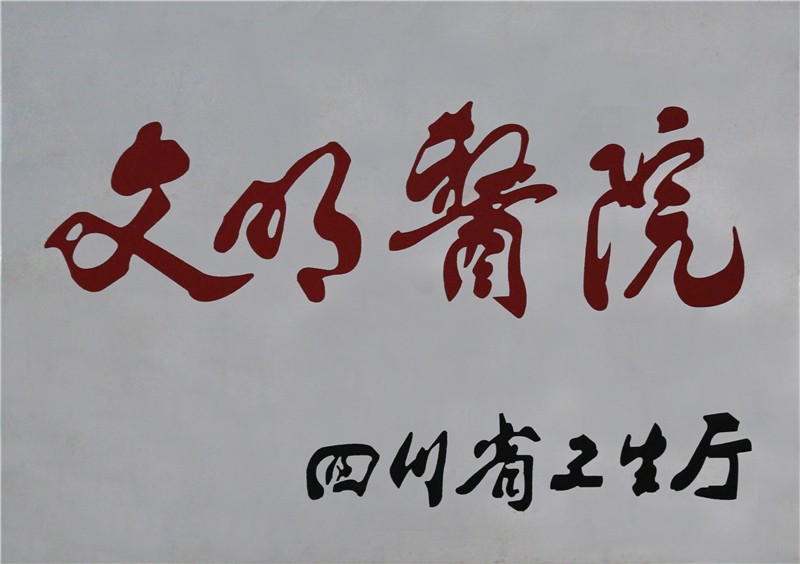 文明醫院
四川省卫生厅